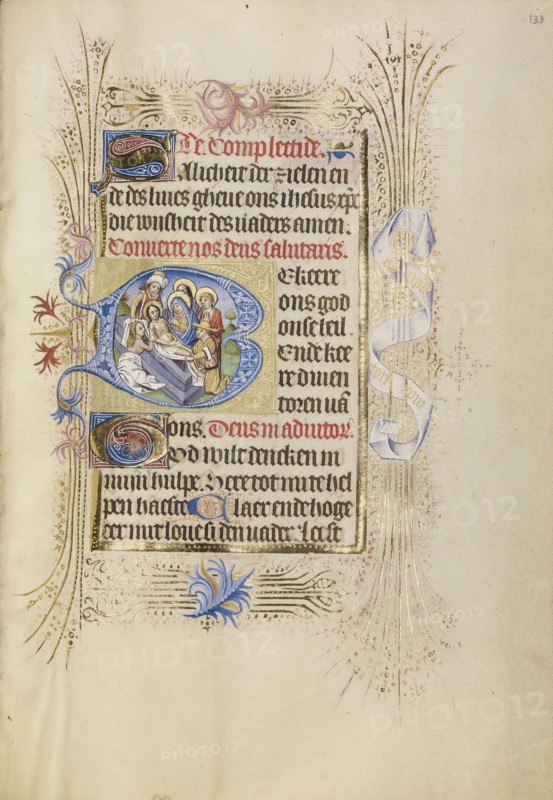 133
De Complectide.
Salicheit der zielen en
de des liues gheue ons ihesus xpc
die wijsheit des vaders amen.
Conuerte nos deus salutaris.
Bekeere
ons god
onse heil.
Ende kee
re dinen
toren van
ons. Deus in adiutor.
God wilt dencken in
mijn hulpe. Here tot mi te hel
pen haeste Glaer ende hoge
eer mit loue si den uader
PHOTO12